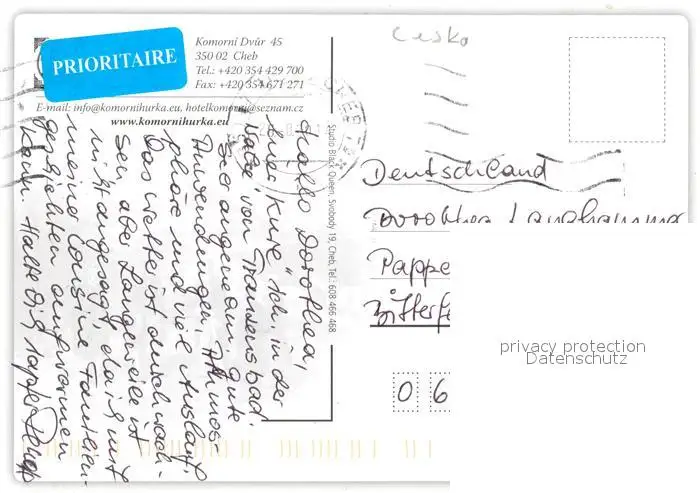 PRIORITAIRE
Komorní Dvůr 45
350 02 Cheb
Tel.: +420 354 429 700
Fax: +420 354 671 271
E-mail: info@komornihurka.eu, hotelkomorni@seznam.cz
www.komornihurka.eu
Česko
Studio Black Queen, Svobody 19, Cheb, Tel.: 608 466 468
Hallo Dorothea,
hier "kure" ich, in der
Nähe von Franzensbad.
Sehr angenehm. Gute
Anwendungen, Atmos-
phäre und viel Auslauf.
Das Wetter ist durchwach-
sen, aber Langeweile ist
nicht angesagt, da ich mit
meine Cousine Familien-
geschichten aufwärmen
kann. Halte Dich tapfer
Deutschland
Dorothea Langhamme
Pappe
Bitterfe
0 6
privacy protection
Datenschutz